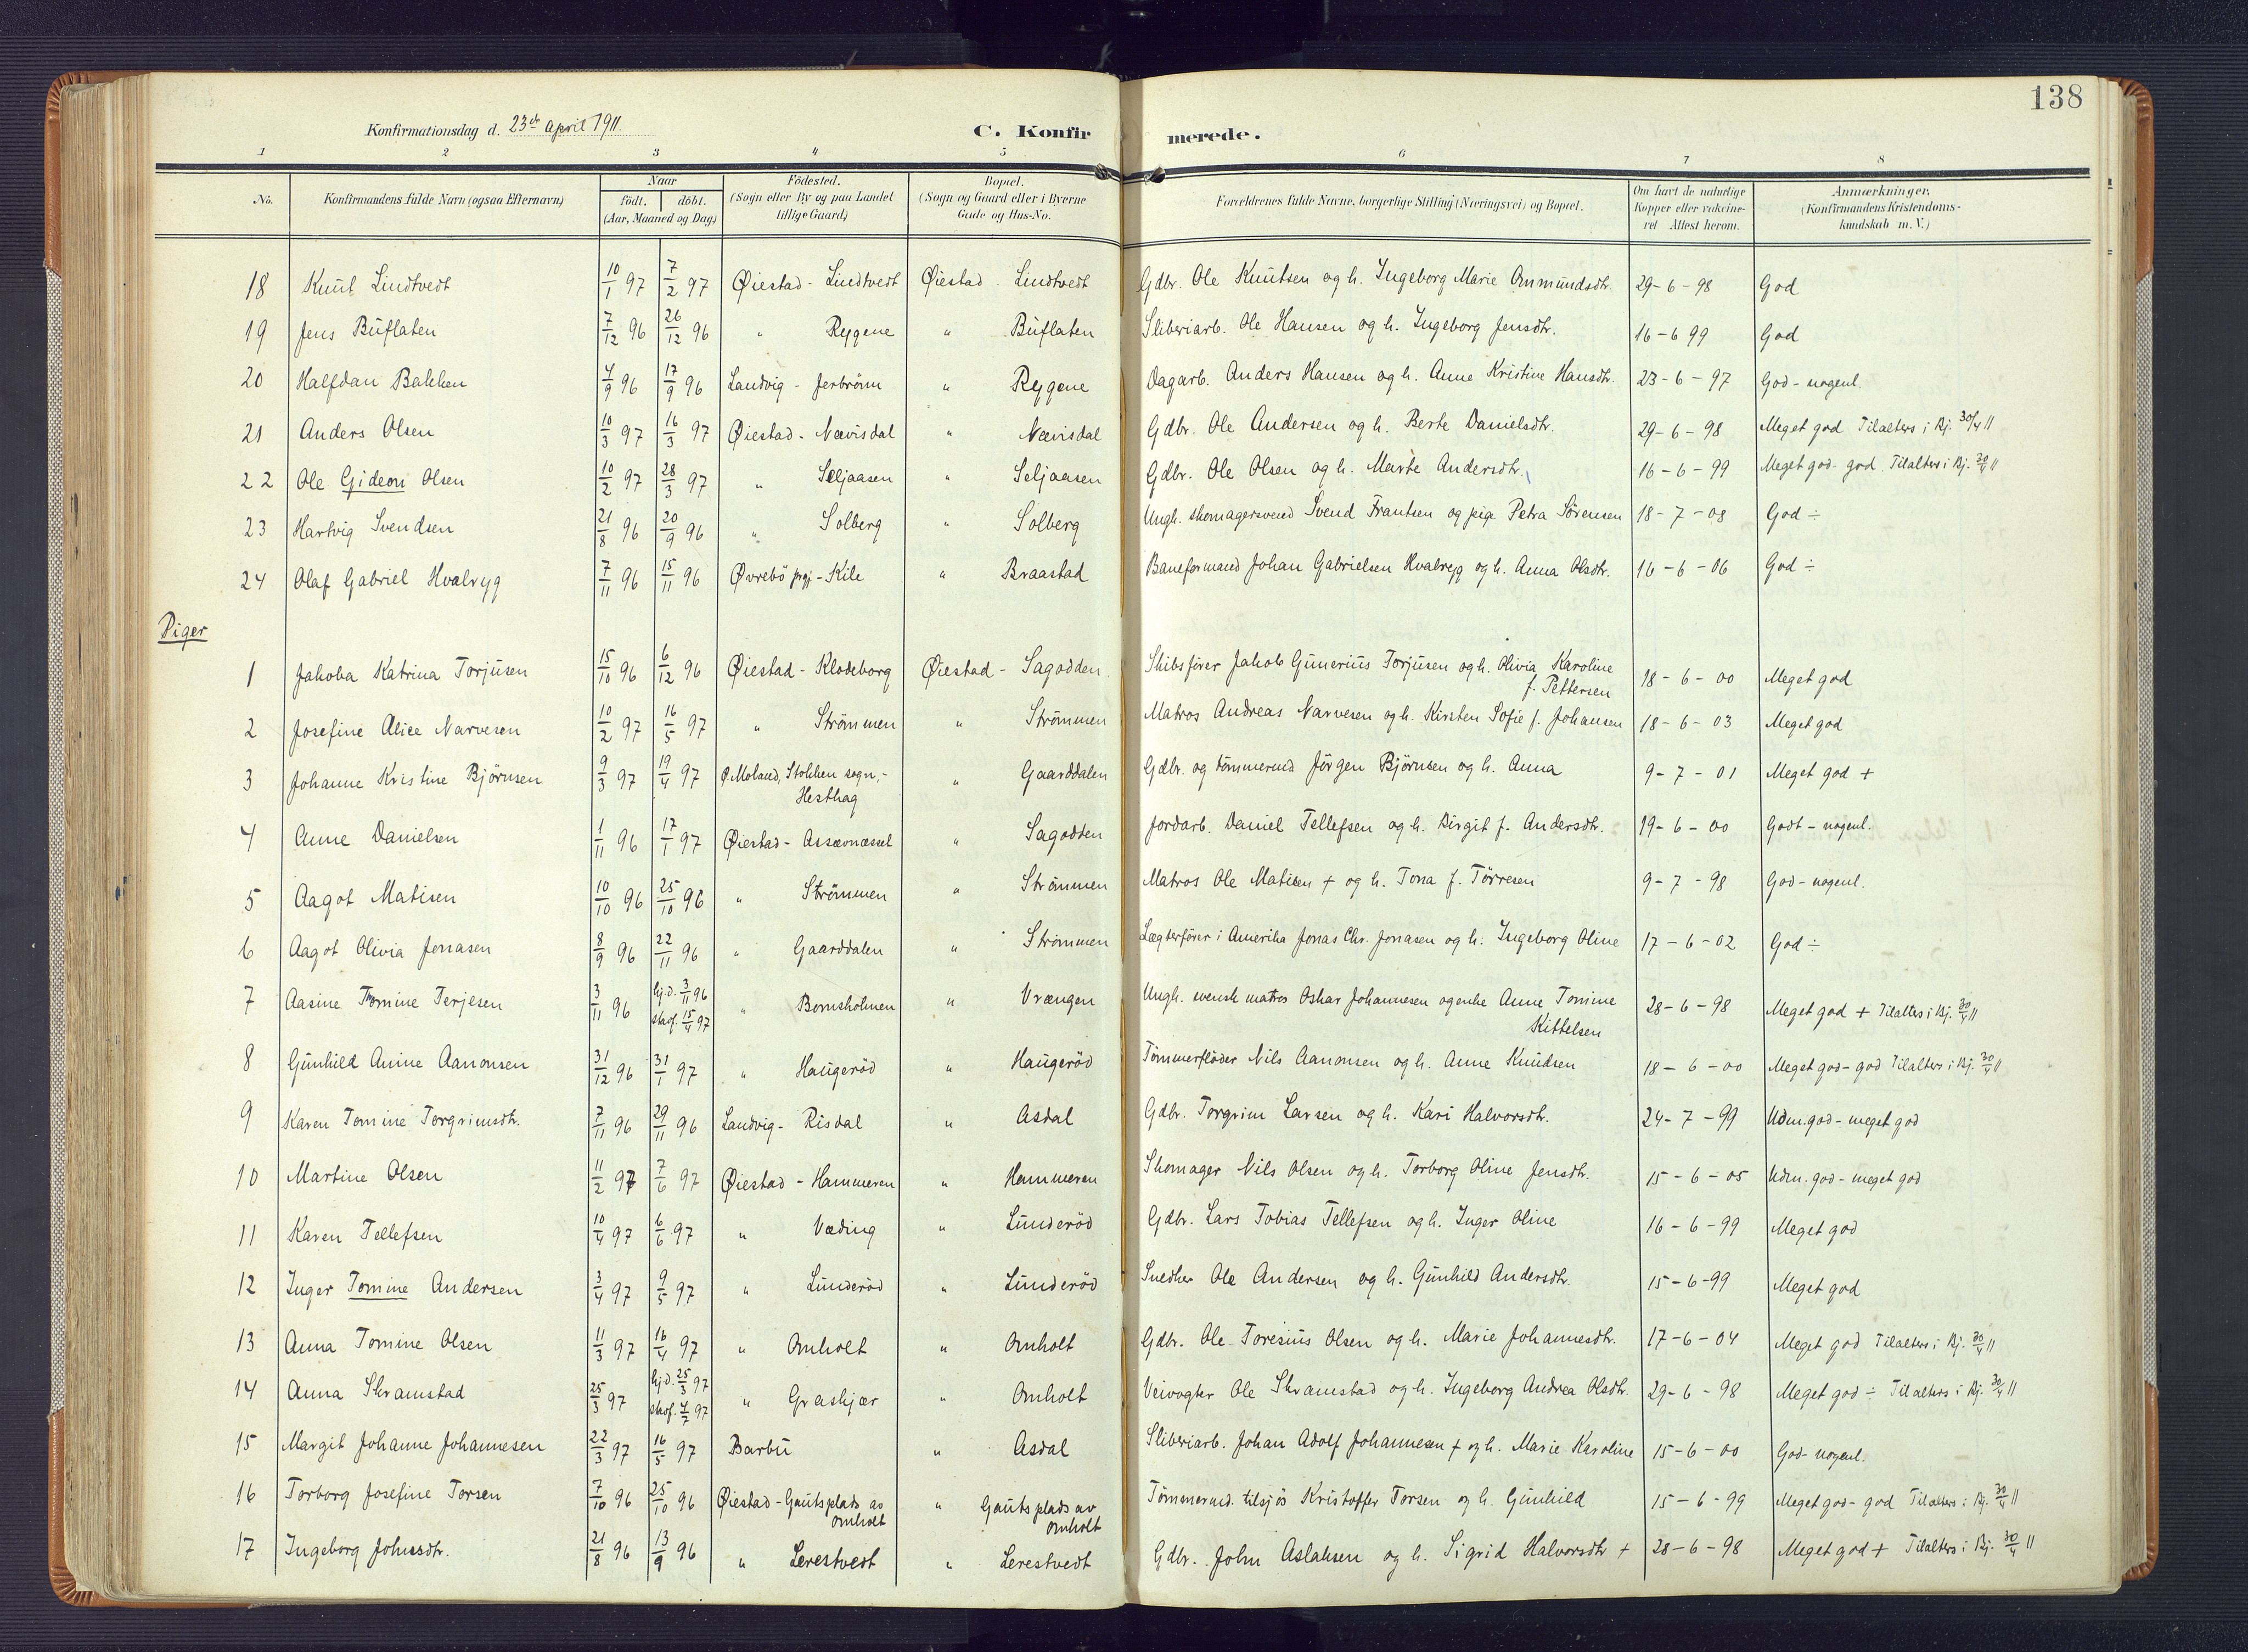 138
Konfirmationsdag d. 23de April 1911. C. Konfirmerede.
1 2 3 4 5 6 7 8
No. Konfirmandens fulde Navn (ogsaa Efternavn) Naar födt. döbt. (Aar, Maaned og Dag) Födested. (Sogn eller By og paa Landet tillige Gaard) Bopæl. (Sogn og Gaard eller i Byerne Gade og Hus-No. Forældrenes fulde Navne, borgerlige Stilling (Næringsvei) og Bopæl. Om havt de naturlige Kopper eller vakcineret Attest herom. Anmærkninger. (Konfirmandens Kristendomskundskab m. V.)
18 Knut Lindtvedt 10/1 97 7/2 97 Øiestad - Lindtvedt Øiestad - Lindtvedt Gdbr. Ole Knutsen og h. Ingeborg Marie Onmundsdtr. 29-6-98 God
19 Jens Buflaten 7/12 96 26/12 96 " Rygene " Buflaten Sliberiarb. Ole Hansen og h. Ingeborg Jensdtr. 16-6 99 God
20 Halfdan Bakken 4/9 96 17/9 96 Landvig - Jerbrönn " Rygene Dagarb. Anders Hansen og h. Anne Kristine Hansdtr. 23-6-97 God - nogenl.
21 Anders Olsen 10/3 97 16/3 97 Øiestad - Nævisdal " Nævisdal Gdbr. Ole Andersen og h. Berte Danielsdtr. 29-6-98 Meget god Tilalters i Bj. 30/4 11
22 Ole Gideon Olsen 10/2 97 28/3 97 " Seljaasen " Seljaasen Gdbr. Ole Olsen og h. Marte Andersdtr. 16-6-99 Meget god - god. Tilalters i Bj. 30/4 11
23 Hartvig Svendsen 21/8 96 20/9 96 " Solberg " Solberg Ungk. skomagersvend Svend Frantsen og pige Petra Sörensen 18-7-08 God ÷
24 Olaf Gabriel Hvalryg 7/11 96 15/11 96 Øvrebö prgj - Kile " Braastad Baneformand Johan Gabrielsen Hvalryg og h. Anna Olsdtr. 16-6-06 God ÷
Piger
1 Jakoba Katrina Torjusen 15/10 96 6/12 96 Øiestad - Klodeborg Øiestad - Sagodden. Skibsförer Jakob Gunerius Torjusen og h. Olivia Karoline f. Pettersen 18-6-00 Meget god
2 Josefine Alice Narvesen 10/2 97 16/5 97 " Strömmen " Strömmen Matros Andreas Narvesen og h. Kirsten Sofie f. Johansen 18-6-03 Meget god
3 Johanne Kristine Björnsen 9/3 97 19/4 97 Ø. Moland, Stokken sogn, - Hesthag " Gaarddalen Gdbr. og tömmermd Jörgen Björnsen og h. Anna 9-7-01 Meget god +
4 Anne Danielsen 1/11 96 17/1 97 Øiestad - Assævnæssel " Sagodden Jordarb. Daniel Tellefsen og h. Birgit f. Andersdtr. 19-6-00 Godt - nogenl.
5 Aagot Matisen 10/10 96 25/10 96 " Strömmen " Strömmen Matros Ole Matisen + og h. Tona f. Törresen 9-7-98 God - nogenl.
6 Aagot Olivia Jonasen 8/9 96 22/11 96 " Gaarddalen " Strömmen Lægterförer i Amerika Jonas Chr. Jonasen og h. Ingeborg Oline 17-6-02 God ÷
7 Aasine Tomine Terjesen 3/11 96 hj.d. 3/11 96 stadf. 15/4 97 " Bomsholmen " Vrængen Ungk. svensk matros Oskar Johannesen og enke Anne Tomine Kittelsen 28-6-98 Meget god + Tilalters i Bj. 30/4 11
8 Gunhild Anine Aanonsen 31/12 96 31/1 97 " Haugeröd " Haugeröd Tömmerflöder Nils Aanonsen og h. Anne Knudsen 18-6-00 Meget god - god Tilalters i Bj. 30/4 11
9 Karen Tomine Torgrimsdtr. 7/11 96 29/11 96 Landvig - Risdal " Asdal Gdbr. Torgrim Larsen og h. Kari Halvorsdtr. 24-7-99 Udm. god - meget god
10 Martine Olsen 11/2 97 7/6 97 Øiestad - Hammeren " Hammeren Skomager Nils Olsen og h. Torborg Oline Jensdtr. 15-6-05 Udm. god - meget god
11 Karen Tellefsen 10/4 97 6/6 97 " Væding " Lunderöd Gdbr. Lars Tobias Tellefsen og h. Inger Oline 16-6-99 Meget god
12 Inger Tomine Andersen 3/4 97 9/5 97 " Lunderöd " Lunderöd Snedker Ole Andersen og h. Gunhild Andersdtr. 15-6-99 Meget god
13 Anna Tomine Olsen 11/3 97 16/4 97 " Omholt " Omholt Gdbr. Ole Toresius Olsen og h. Marie Johannesdtr. 17-6-04 Meget god Tilalters i Bj. 30/4 11
14 Anna Skramstad 25/3 97 hj.d. 25/3 97 stadf. 4/7 97 " Graskjær " Omholt Veivogter Ole Skramstad og h. Ingeborg Andrea Olsdtr. 29-6-98 Meget god ÷ Tilalters i Bj. 30/4 11
15 Margit Johanne Johannesen 22/3 97 16/5 97 Barbu " Asdal Sliberiarb. Johan Adolf Johannesen + og h. Marie Karoline 15-6-00 God - nogenl.
16 Torborg Josefine Torsen 7/10 96 25/10 96 Øiestad - Gautsplads av Omholt " Gautsplads av Omholt Tömmermd. tilsjös Kristoffer Torsen og h. Gunhild 15-6-99 Meget god - god Tilalters i Bj. 30/4 11
17 Ingeborg Johnsdtr. 21/8 96 13/9 96 " Lerestvedt " Lerestvedt Gdbr. John Aslaksen og h. Sigrid Halvorsdtr + 28-6-98 Meget god + Tilalters i Bj. 30/4 11